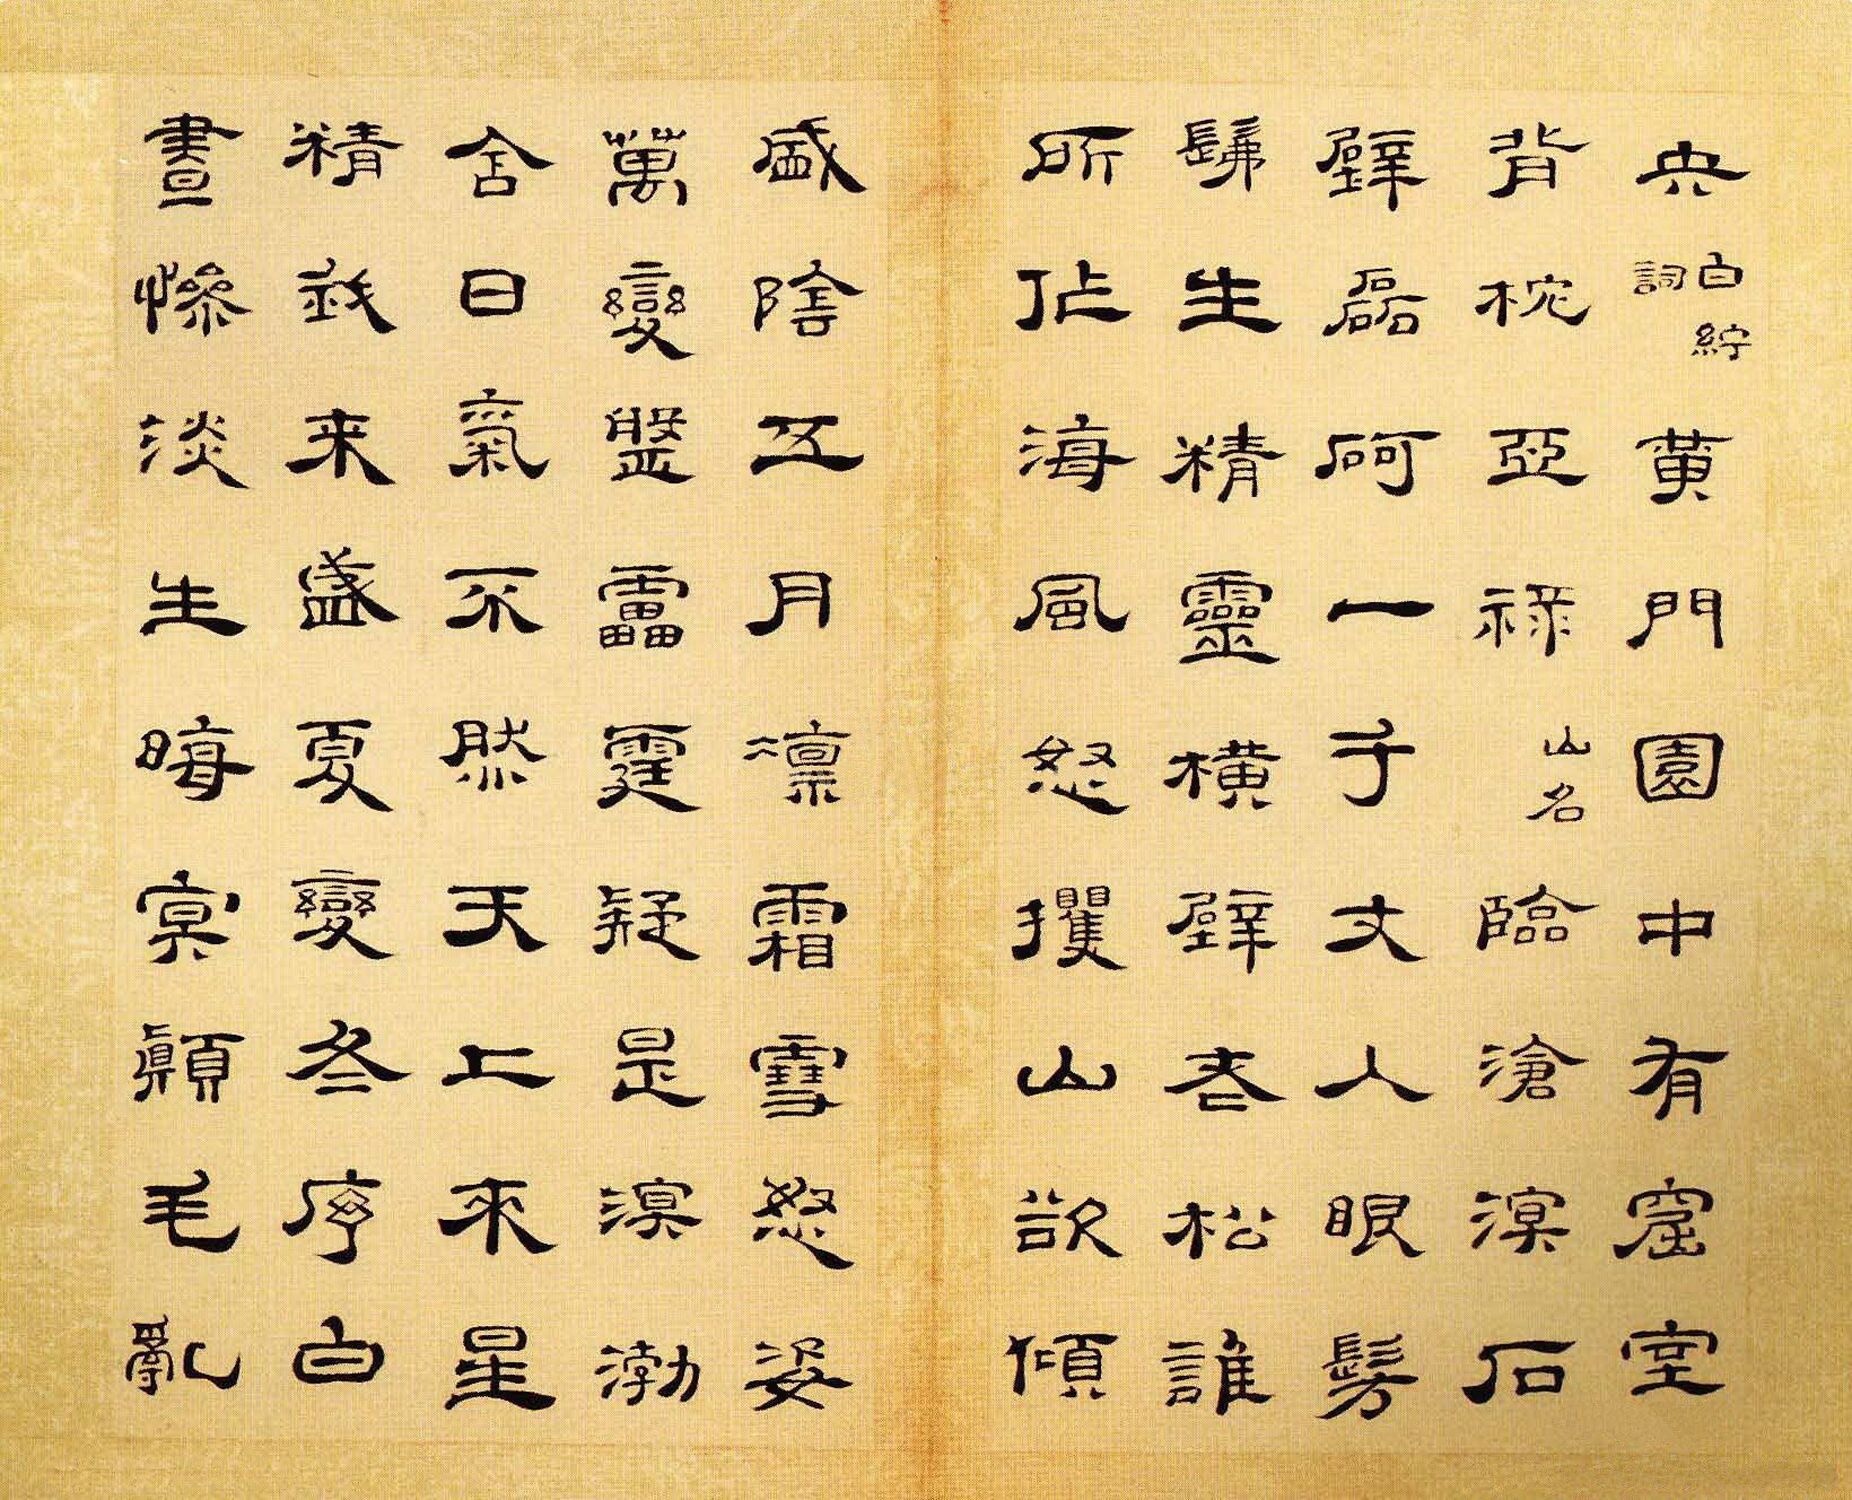 白紵詞
黃門園中有窟室
背枕亞祿山名臨滄溟石
壁磊砢一千丈人眼髣
髴生精靈橫壁老松誰
所作海風怒攫山欲傾
盛陰五月凜霜雪怒姿
萬變靁霆疑是溟渤
舍日氣不然天上來星
精来盛夏變冬序白
晝慘淡生晦冥顛毛亂